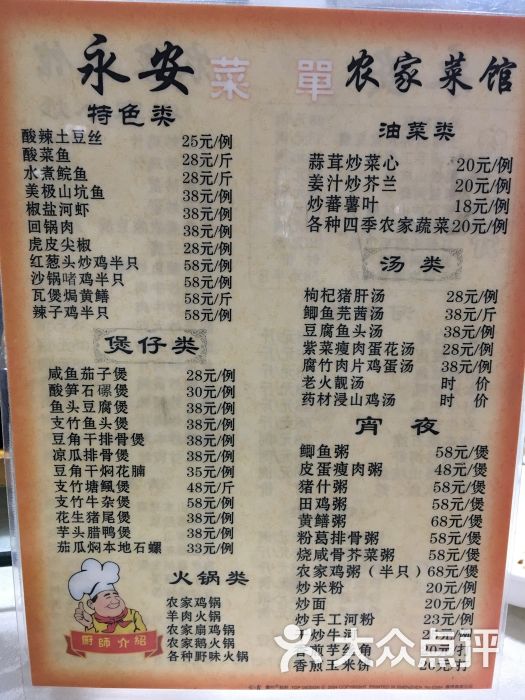 永安 菜單 农家菜馆
特色类
酸辣土豆丝 25元/例
酸菜鱼 28元/斤
水煮鲩鱼 28元/斤
美极山坑鱼 38元/例
椒盐河虾 38元/例
回锅肉 38元/例
虎皮尖椒 28元/例
红葱头炒鸡半只 58元/例
沙锅啫鸡半只 58元/例
瓦煲焗黄鳝 58元/斤
辣子鸡半只 58元/例
煲仔类
咸鱼茄子煲 28元/例
酸笋石螺煲 30元/例
鱼头豆腐煲 38元/例
支竹鱼头煲 38元/例
豆角干排骨煲 38元/例
凉瓜排骨煲 38元/例
豆角干焖花腩 35元/例
支竹塘鲺煲 48元/斤
支竹牛杂煲 58元/例
花生猪尾煲 38元/例
芋头腊鸭煲 38元/例
茄瓜焖本地石螺 33元/例
火锅类
农家鸡锅
羊肉火锅
农家扇鸡锅
农家鹅火锅
各种野味火锅
廚師介紹
油菜类
蒜茸炒菜心 20元/例
姜汁炒芥兰 20元/例
炒蕃薯叶 18元/例
各种四季农家蔬菜20元/例
汤类
枸杞猪肝汤 28元/例
鲫鱼芫茜汤 38元/斤
豆腐鱼头汤 38元/例
紫菜瘦肉蛋花汤 28元/例
腐竹肉片鸡蛋汤 38元/例
老火靓汤 时价
药材浸山鸡汤 时价
宵夜
鲫鱼粥 58元/煲
皮蛋瘦肉粥 48元/煲
猪什粥 58元/煲
田鸡粥 58元/煲
黄鳝粥 68元/煲
粉葛排骨粥 58元/煲
烧咸骨芥菜粥 58元/煲
农家鸡粥（半只）68元/煲
炒米粉 20元/例
炒面 20元/例
炒手工河粉 23元/例
炒牛河
煎芋丝角 20元/打
香煎玉米饼 20元/打
大众点评